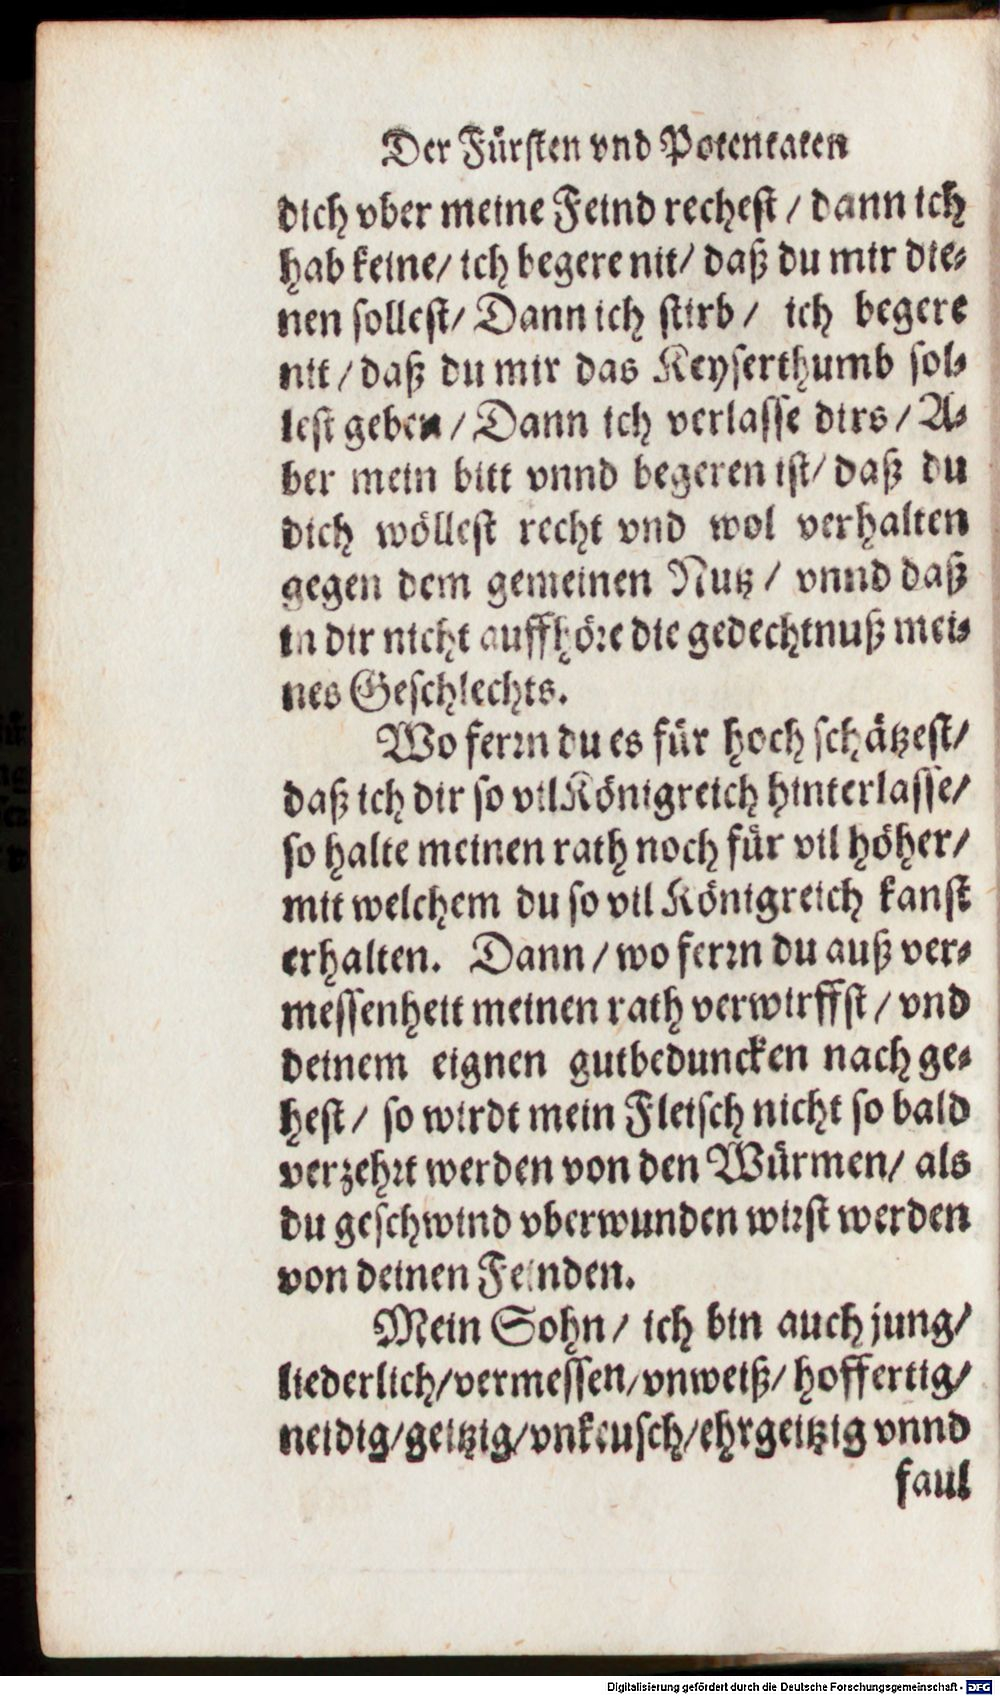 Der Fürsten vnd Potentaten
dich vber meine Feind rechest / dann ich
hab keine/ ich begere nit/ daß du mir die-
nen sollest/ Dann ich stirb / ich begere
nit / daß du mir das Keyserthumb sol-
lest geben / Dann ich verlasse dirs / A-
ber mein bitt vnnd begeren ist/ daß du
dich wöllest recht vnd wol verhalten
gegen dem gemeinen Nutz / vnnd daß
in dir nicht auffhöre die gedechtnuß mei-
nes Geschlechts.
Wo ferrn du es für hoch schätzest/
daß ich dir so vil Königreich hinterlasse/
so halte meinen rath noch für vil höher/
mit welchem du so vil Königreich kanst
erhalten. Dann / wo ferrn du auß ver-
messenheit meinen rath verwirffst / vnd
deinem eignen gutbeduncken nach ge-
hest / so wirdt mein Fleisch nicht so bald
verzehrt werden von den Würmen/ als
du geschwind vberwunden wirst werden
von deinen Feinden.
Mein Sohn / ich bin auch jung/
liederlich/vermessen/vnweiß/ hoffertig/
neidig/geitzig/vnkeusch/ehrgeitzig vnnd
faul
Digitalisierung gefördert durch die Deutsche Forschungsgemeinschaft - DFG